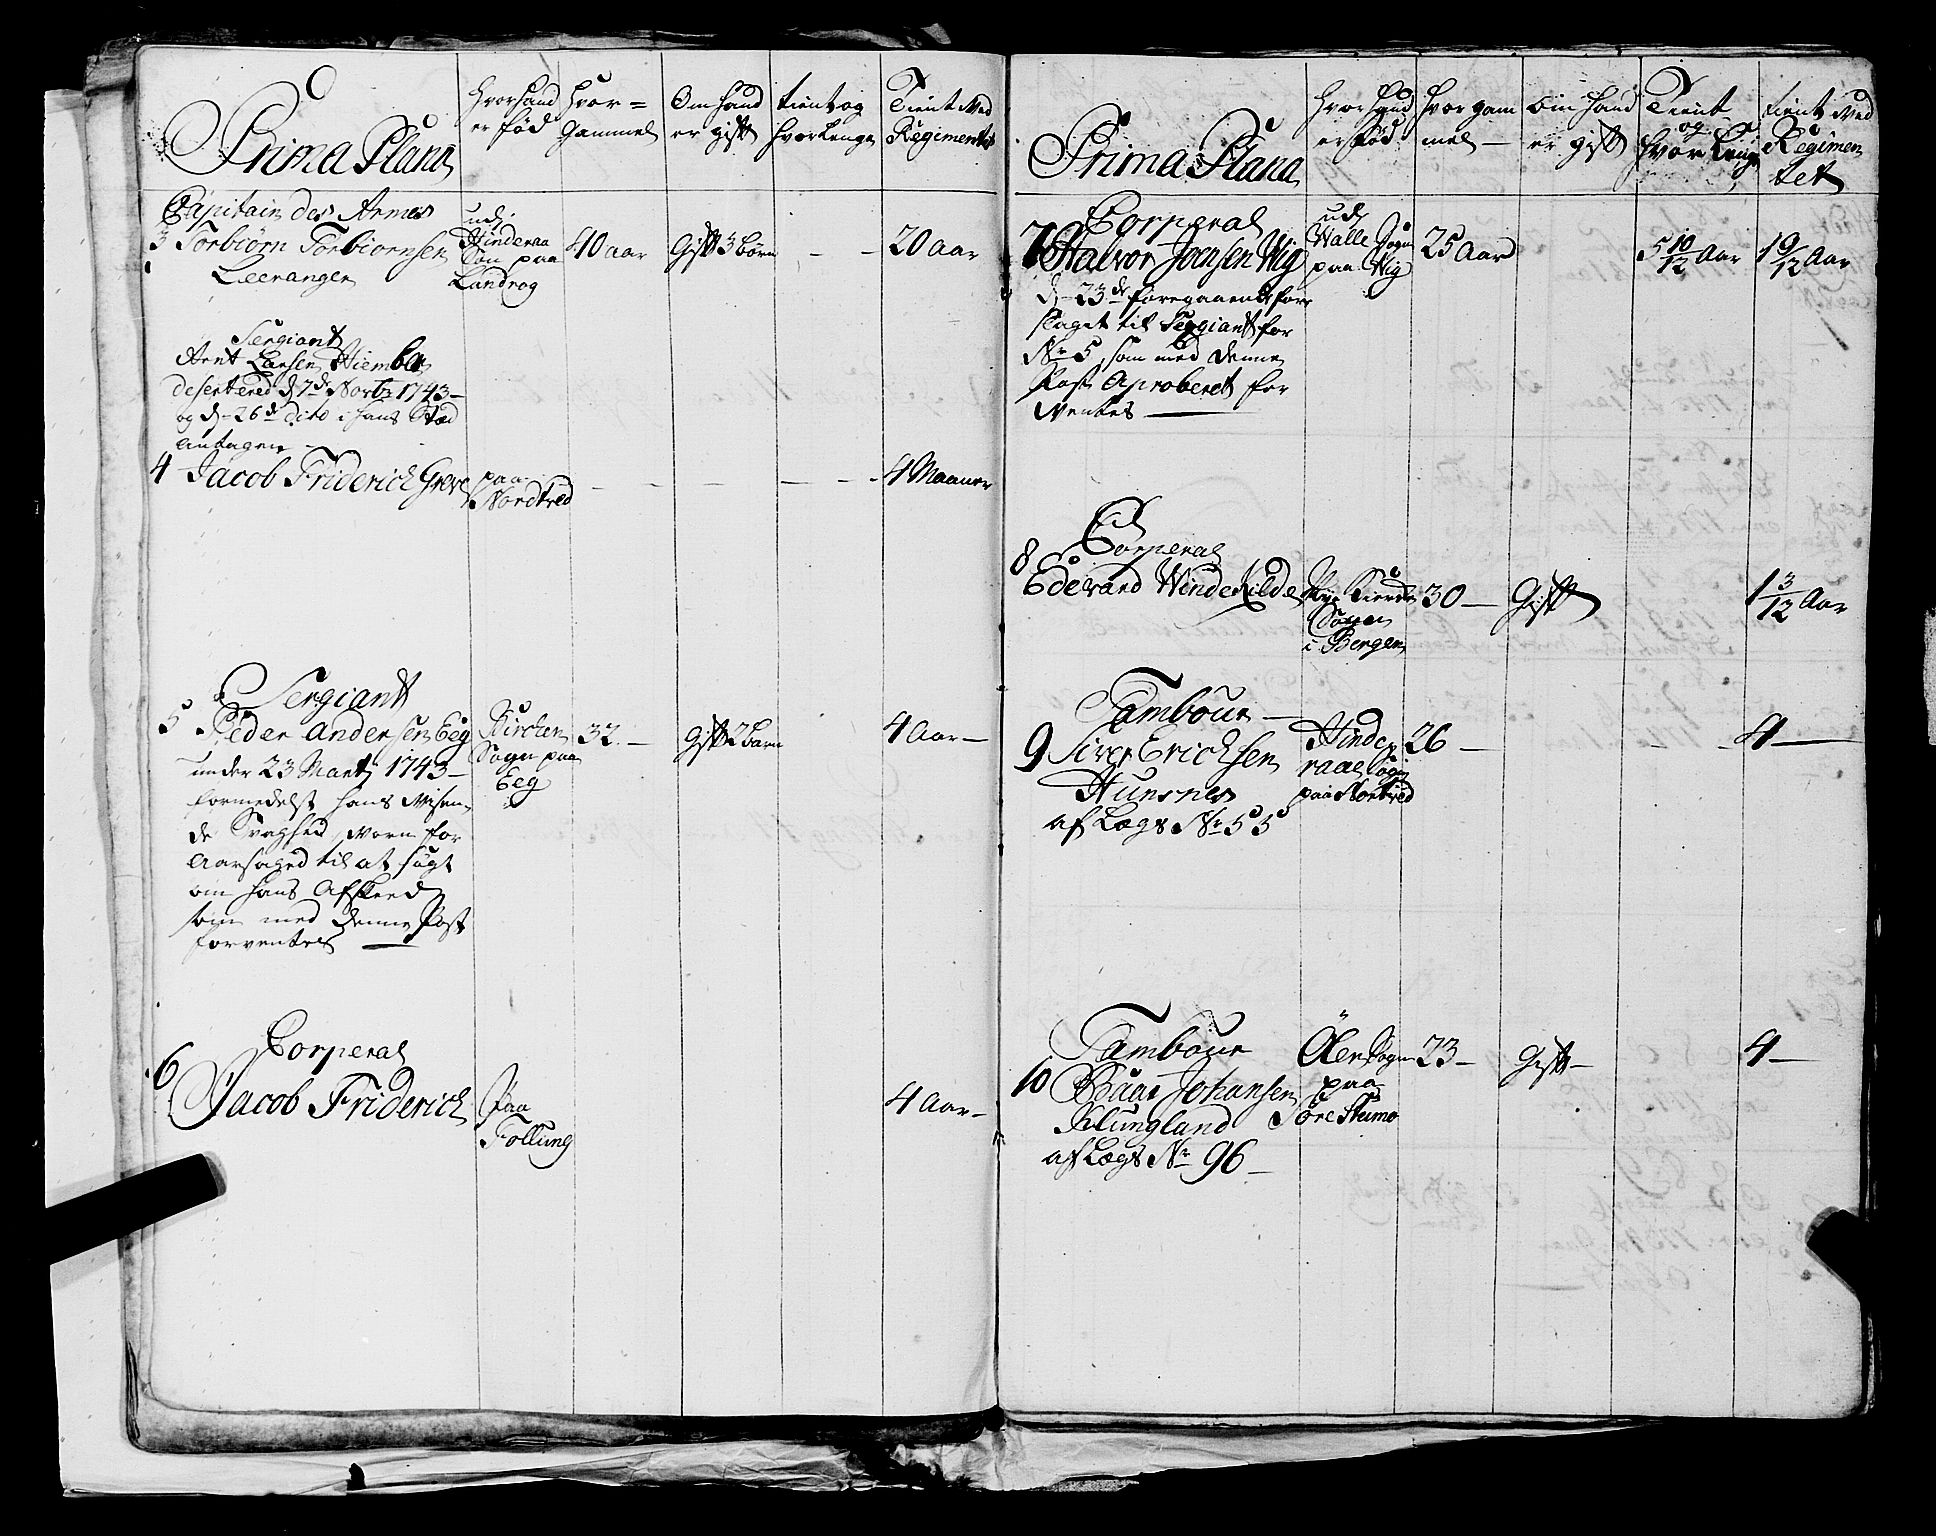 Prima Plana
hvor hand
er fød
hvor=
Gammel
Om hand
er gift
tient og
hvor Lenge
Tient ved
Regimentet
Capitain des Armes
3 Torbiørn Torbiørnsen
Leerangen
udj
Hinderaa
Sou paa
Landrog
40 aar
Gift 3 børn
- -
20 aar
Sergiant
Arent Larsen Hiemb
desertered d 7de Novbr 1743 -
og d - 26de dito i hans Stæd
antagen -
4 Jacob Friderich Greve
paa
Nordtved
- - - - -
4 Maaner
Sergiant
5 Peder Andersen Eeg
under 23 Martj 1743 -
formedelst hans Visen
de Svaghed, vorn for
Aarsaged til at søgt
om hans Afskeed
som med denne Post
forventes
Kircken
Sogn paa
Eeg
32. -
Gift 2 Barn
4 Aar -
Corperal
6
Jacob Friderich
Paa
Follung
4 Aar -
Prima Plana
hvor hand
er fød
hvor gam
mel -
om hand
er gift
Tient
og
hvor Lenge
tient ved
Regimen
tet
Corperal
7 Halvor Joensen Wig
d - 23de foregaaende fore
slaget til Sergiant for
No 5, som med denne
Post Aproberet for
ventes
udj
Walle Sogn
paa Wig
25 Aar
5 10/12 Aar
1 9/12 Aar
Corperal
8
Edevard Windekilde
Nye Kierche
Sogn
i Bergen
30 -
Gift
1 3/12 Aar
Tambour -
9 Siver Erichsen
Hunsnes
af Lægs No 55
Hinde
raae Sogn
paa Nortved
26 -
- -
4 -
Tambour
10 Baar Johansen
Klungland
af Lægs No 96 -
Ölen Sogn
paa
Søre Stumo
23 -
Gift -
4 -